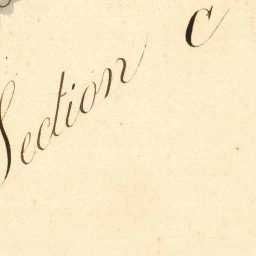 Section c